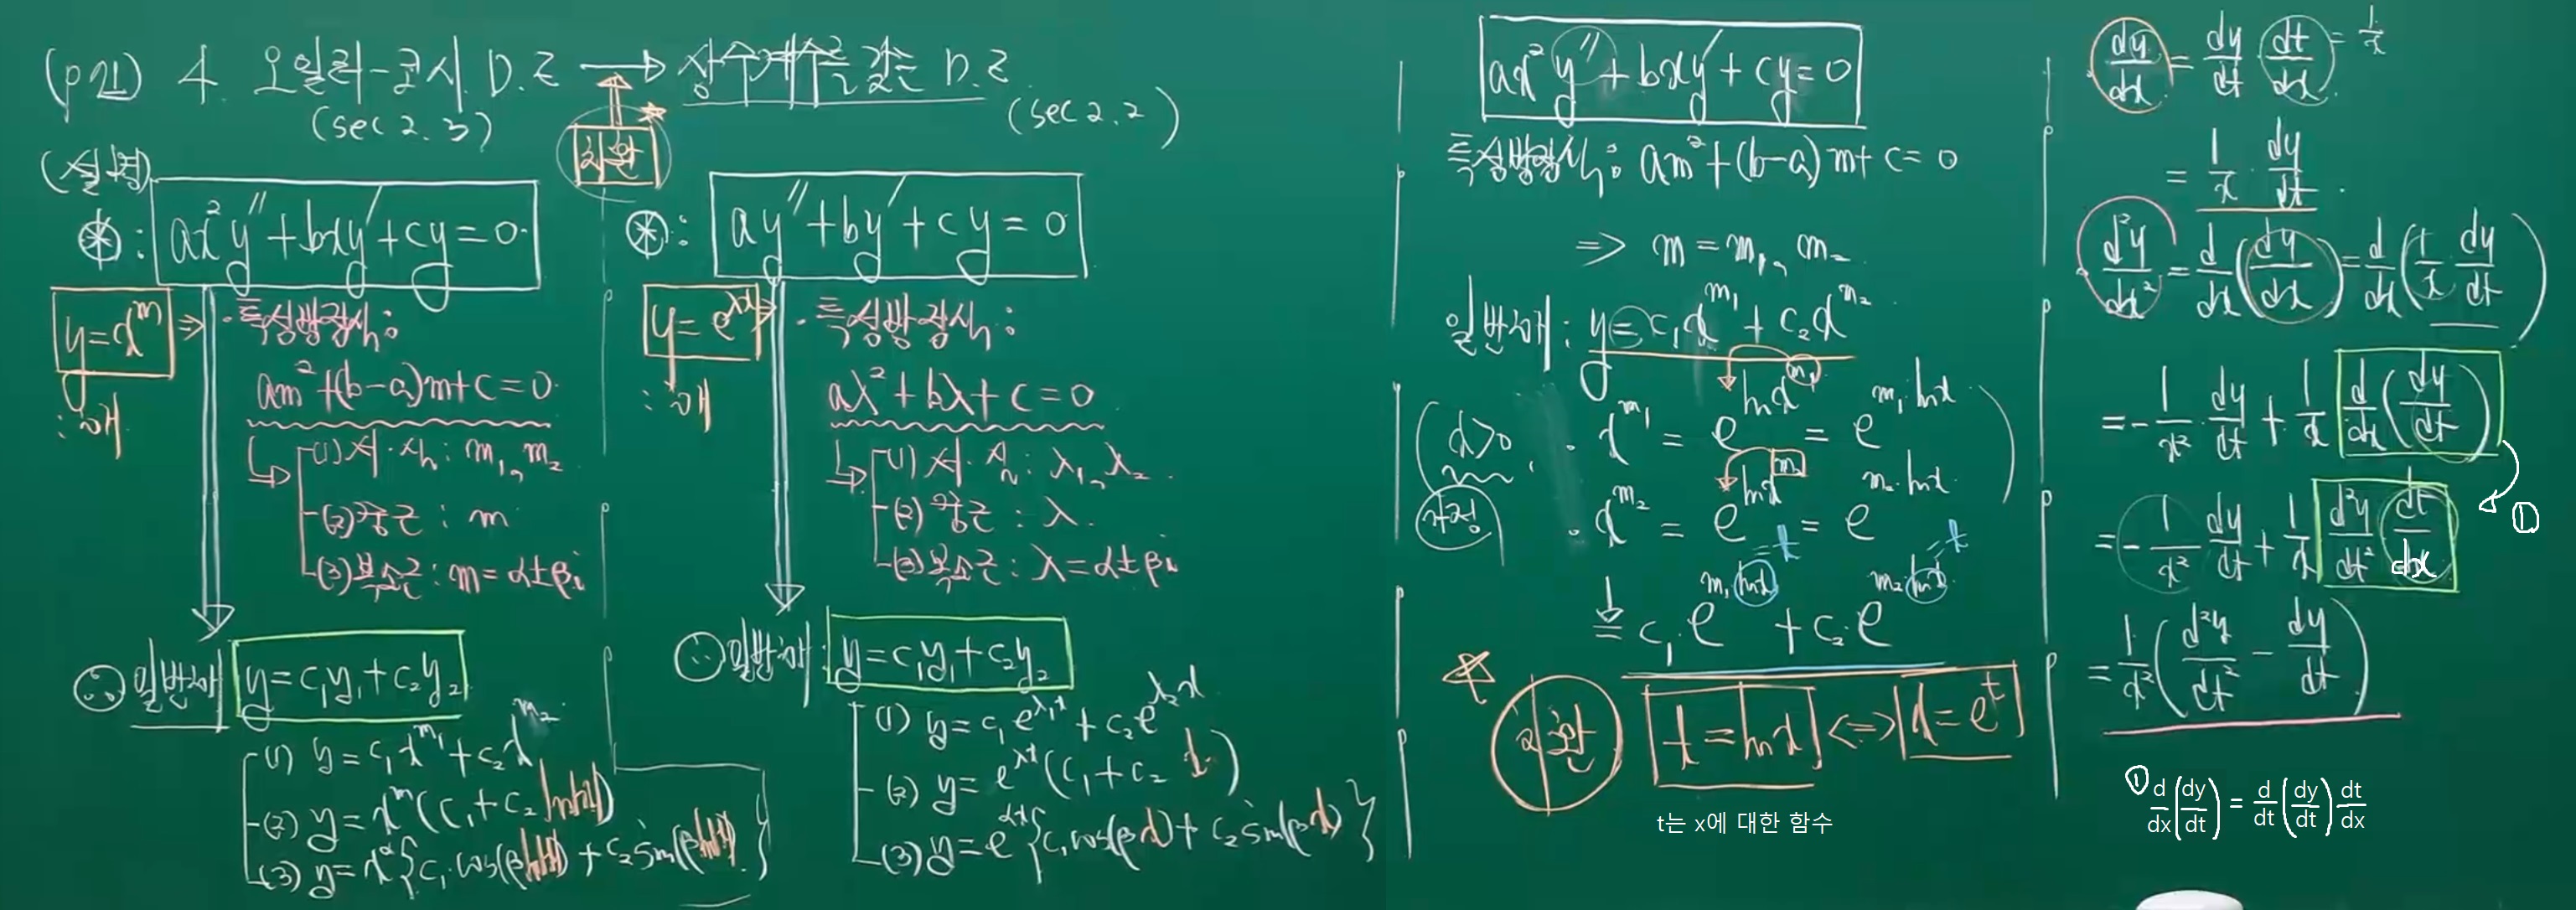 (p21) 4. 오일러-코시 D.E → 상수계수를 갖는 D.E
(sec 2.3)
(sec 2.2)
치환
(설정)
⊛: ax²y″+bxy′+cy=0
y=x^m ⇒
:해
·특성방정식:
am²+(b-a)m+c=0
(1) 서.실: m₁, m₂
(2) 중근: m
(3) 복소근: m=α±βi
∴ 일반해 y=c₁y₁+c₂y₂
(1) y=c₁x^m₁+c₂x^m₂
(2) y=x^m(c₁+c₂ln|x|)
(3) y=x^α{c₁·cos(βln|x|)+c₂sin(βln|x|)}
⊛: ay″+by′+cy=0
y=e^λx ⇒
:해
·특성방정식:
aλ²+bλ+c=0
(1) 서.실: λ₁, λ₂
(2) 중근: λ
(3) 복소근: λ=α±βi
∴ 일반해: y=c₁y₁+c₂y₂
(1) y=c₁e^λ₁x+c₂e^λ₂x
(2) y=e^λx(c₁+c₂x)
(3) y=e^αx{c₁cos(βx)+c₂sin(βx)}
ax²y″+bxy′+cy=0
특성방정식: am²+(b-a)m+c=0
⇒ m=m₁, m₂
일반해: y=c₁x^m₁+c₂x^m₂
(x>0 ·x^m₁=e^ln x^m₁=e^m₁·lnx)
가정! ·x^m₂=e^ln x^m₂=e^m₂·lnx
=t =t
=c₁·e^m₁lnx+c₂·e^m₂lnx
☆ 치환 t=lnx ⇔ x=e^t
t는 x에 대한 함수
dy/dx = dy/dt dt/dx = 1/x
= 1/x · dy/dt
d²y/dx² = d/dx(dy/dx) = d/dx(1/x · dy/dt)
= -1/x² · dy/dt + 1/x d/dx(dy/dt)
= -1/x² dy/dt + 1/x d²y/dt² dt/dx ①
= 1/x²(d²y/dt² - dy/dt)
① d/dx(dy/dt) = d/dt(dy/dt) dt/dx